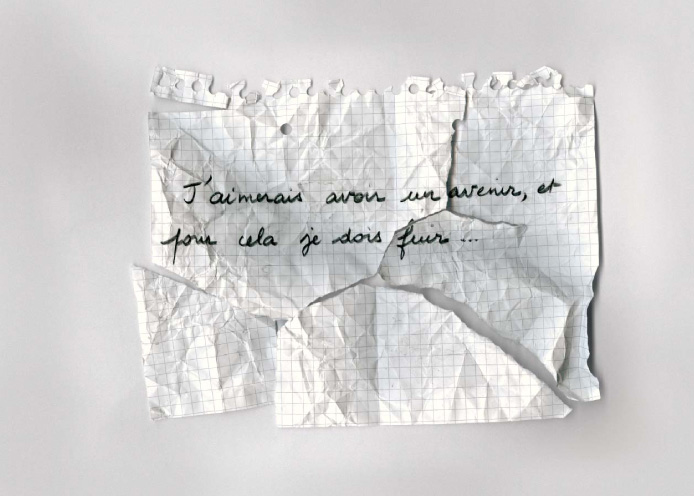 J'aimerais avoir un avenir, et
pour cela je dois fuir ...